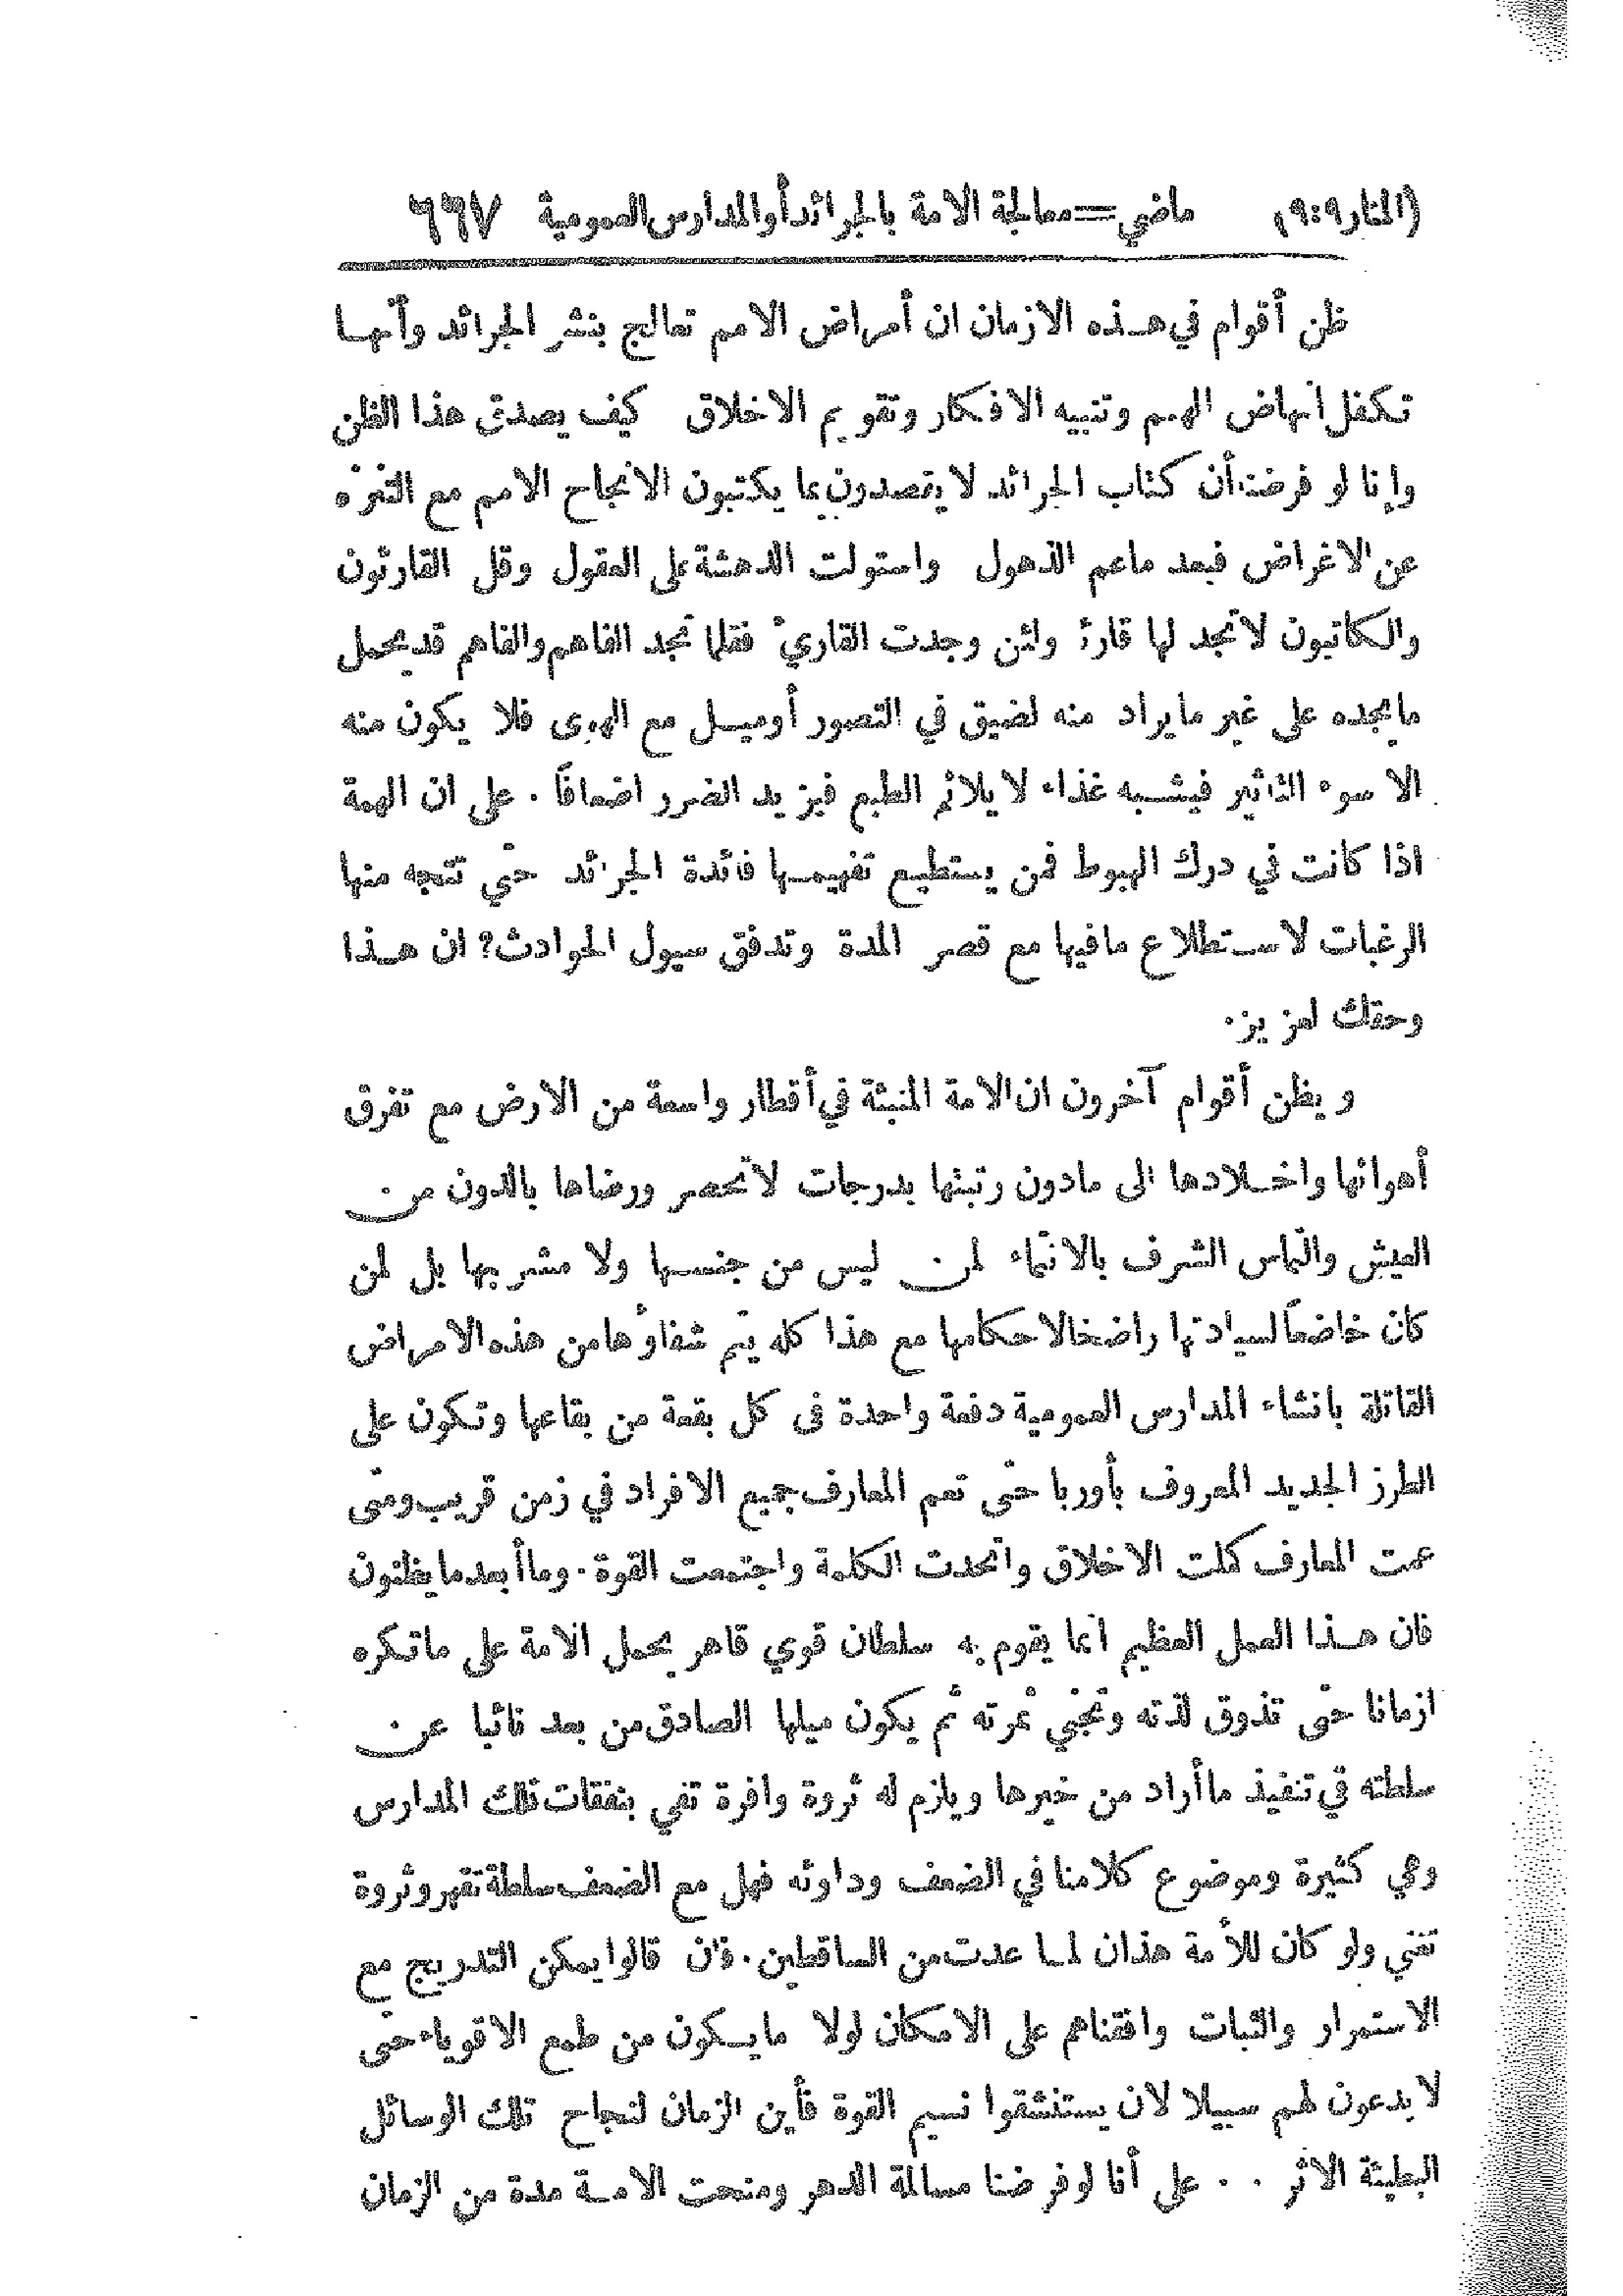 (المنار ٩:٩) ماضي = معالجة الامة بالجرائد أو المدارس العمومية ٦٦٧
ظن أقوام في هذه الازمان ان أمراض الامم تعالج بنشر الجرائد وأنها
تكفل انهاض الهمم وتنبيه الافكار وتقويم الاخلاق كيف يصدق هذا الظن
وإنا لو فرضنا أن كتاب الجرائد لا يقصدون بما يكتبون الا نجاح الامم مع التنزه
عن الاغراض فبعد ما عم الذهول واستولت الدهشة على العقول وقل القارئون
والكاتبون لا تجد لها قارئا ولئن وجدت القارئ فقلما تجد الفاهم والفاهم قد يحمل
ما يجده على غير ما يراد منه لضيق في التصور أو ميل مع الهوى فلا يكون منه
الا سوء التأثير فيشبه غذاء لا يلائم الطبع فيزيد الضرر اضعافاً . على ان الهمة
اذا كانت في درك الهبوط فمن يستطيع تفهيمها فائدة الجرائد حتى تتجه منها
الرغبات لاستطلاع ما فيها مع قصر المدة وتدفق سيول الحوادث؟ ان هذا
وحقك لعزيز.
ويظن أقوام آخرون ان الامة المنبثة في أقطار واسعة من الارض مع تفرق
أهوائها واخلادها الى ما دون رتبتها بدرجات لا تحصر ورضاها بالدون من
العيش والتماس الشرف بالانتماء لمن ليس من جنسها ولا مشربها بل لمن
كان خاضعاً لسيادتها راضخا لاحكامها مع هذا كله يتم شفاؤها من هذه الامراض
القاتلة بانشاء المدارس العمومية دفعة واحدة في كل بقعة من بقاعها وتكون على
الطرز الجديد المعروف بأوربا حتى تعم المعارف جميع الافراد في زمن قريب ومتى
عمت المعارف كملت الاخلاق واتحدت الكلمة واجتمعت القوة . وما أبعد ما يظنون
فان هذا العمل العظيم انما يقوم به سلطان قوي قاهر يحمل الامة على ما تكره
ازمانا حتى تذوق لذته وتجني ثمرته ثم يكون ميلها الصادق من بعد نائبا عن
سلطته في تنفيذ ما أراد من خيرها ويلزم له ثروة وافرة تفي بنفقات تلك المدارس
وهي كثيرة وموضوع كلامنا في الضعف ودوائه فهل مع الضعف سلطة تقهر وثروة
تغني ولو كان للأمة هذان لما عدت من الساقطين . فان قالوا يمكن التدريج مع
الاستمرار والثبات وافقناهم على الامكان لولا ما يكون من طمع الاقوياء حتى
لا يدعون لهم سبيلا لان يستنشقوا نسيم القوة فأين الزمان لنجاح تلك الوسائل
البطيئة الاثر . . على أنا لو فرضنا مسالمة الدهر ومنحت الامة مدة من الزمان